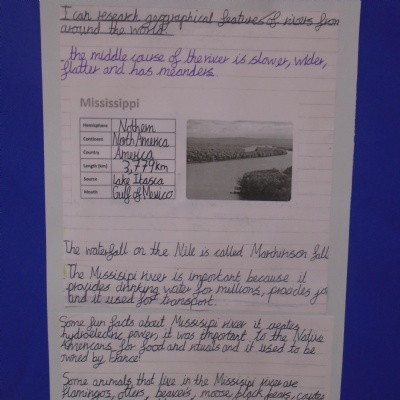 I can research geographical features of rivers from
around the world.
the middle cause of the river is slower, wider,
flatter and has meanders.
Mississippi
Hemisphere Nothern
Continent North America
Country America
Length (km) 3,779km
Source Lake Itasca
Mouth Gulf of Mexico
The waterfall on the Nile is called Marchinson fall
The Missisipi river is important because it
provides drinking water for millions, provides
and it used for transport.
Some fun facts about Missisipi river it
hydroelectric power, it was important to the Native
Americans for food and rituals and it used to be
owned by France!
Some animals that live in the Missisipi river are
flamingos, otters, beavers, moose, black bears,